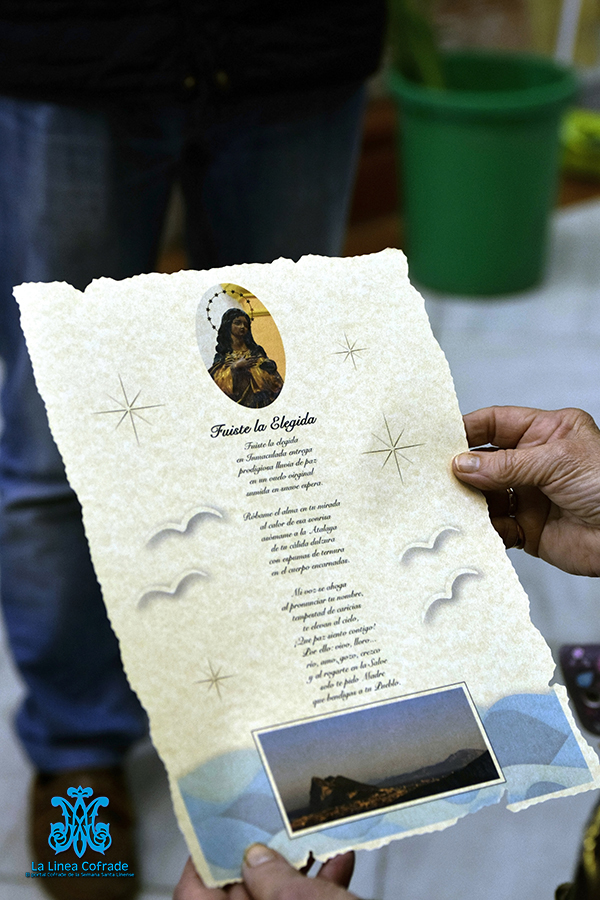 Fuiste la Elegida
Fuiste la elegida
en Inmaculada entrega
prodigiosa lluvia de paz
en un vuelo virginal
sumida en suave espera.
Róbame el alma en tu mirada
al calor de esa sonrisa
asómame a la Atalaya
de tu cálida dulzura
con espumas de ternura
en el cuerpo encarnadas.
Mi voz se ahoga
al pronunciar tu nombre,
tempestad de caricias
te elevan al cielo,
¡Que paz siento contigo!
Por ello: vivo, lloro...
río, amo, gozo, crezco
y al rogarte en la Salve
solo te pido Madre
que bendigas a tu Pueblo.
La Linea Cofrade
El portal Cofrade de la Semana Santa Linense